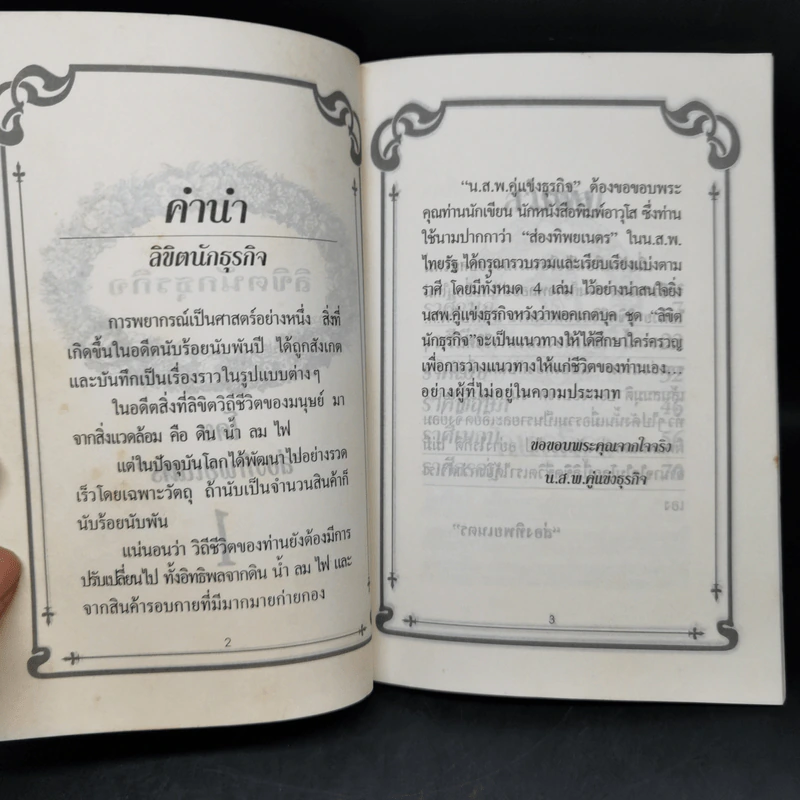 คำนำ
ลิขิตนักธุรกิจ
การพยากรณ์เป็นศาสตร์อย่างหนึ่ง สิ่งที่
เกิดขึ้นในอดีตนับร้อยนับพันปี ได้ถูกสังเกต
และบันทึกเป็นเรื่องราวในรูปแบบต่างๆ
ในอดีตสิ่งที่ลิขิตวิถีชีวิตของมนุษย์ มา
จากสิ่งแวดล้อม คือ ดิน น้ำ ลม ไฟ
แต่ในปัจจุบันโลกได้พัฒนาไปอย่างรวด
เร็วโดยเฉพาะวัตถุ ถ้านับเป็นจำนวนสินค้าก็
นับร้อยนับพัน
แน่นอนว่า วิถีชีวิตของท่านยังต้องมีการ
ปรับเปลี่ยนไป ทั้งอิทธิพลจากดิน น้ำ ลม ไฟ และ
จากสินค้ารอบกายที่มีมากมายก่ายกอง
2
"น.ส.พ.คู่แข่งธุรกิจ" ต้องขอขอบพระ
คุณท่านนักเขียน นักหนังสือพิมพ์อาวุโส ซึ่งท่าน
ใช้นามปากกาว่า "ส่องทิพยเนตร" ในน.ส.พ.
ไทยรัฐ ได้กรุณารวบรวมและเรียบเรียงแบ่งตาม
ราศี โดยมีทั้งหมด 4 เล่ม ไว้อย่างน่าสนใจยิ่ง
นสพ.คู่แข่งธุรกิจหวังว่าพอคเกตบุค ชุด "ลิขิต
นักธุรกิจ"จะเป็นแนวทางให้ได้ศึกษาใคร่ครวญ
เพื่อการวางแนวทางให้แก่ชีวิตของท่านเอง...
อย่างผู้ที่ไม่อยู่ในความประมาท
ขอขอบพระคุณจากใจจริง
น.ส.พ.คู่แข่งธุรกิจ
3